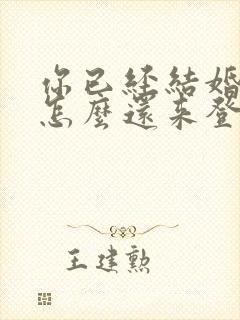 你已經結婚
怎麼還來登
王建勲